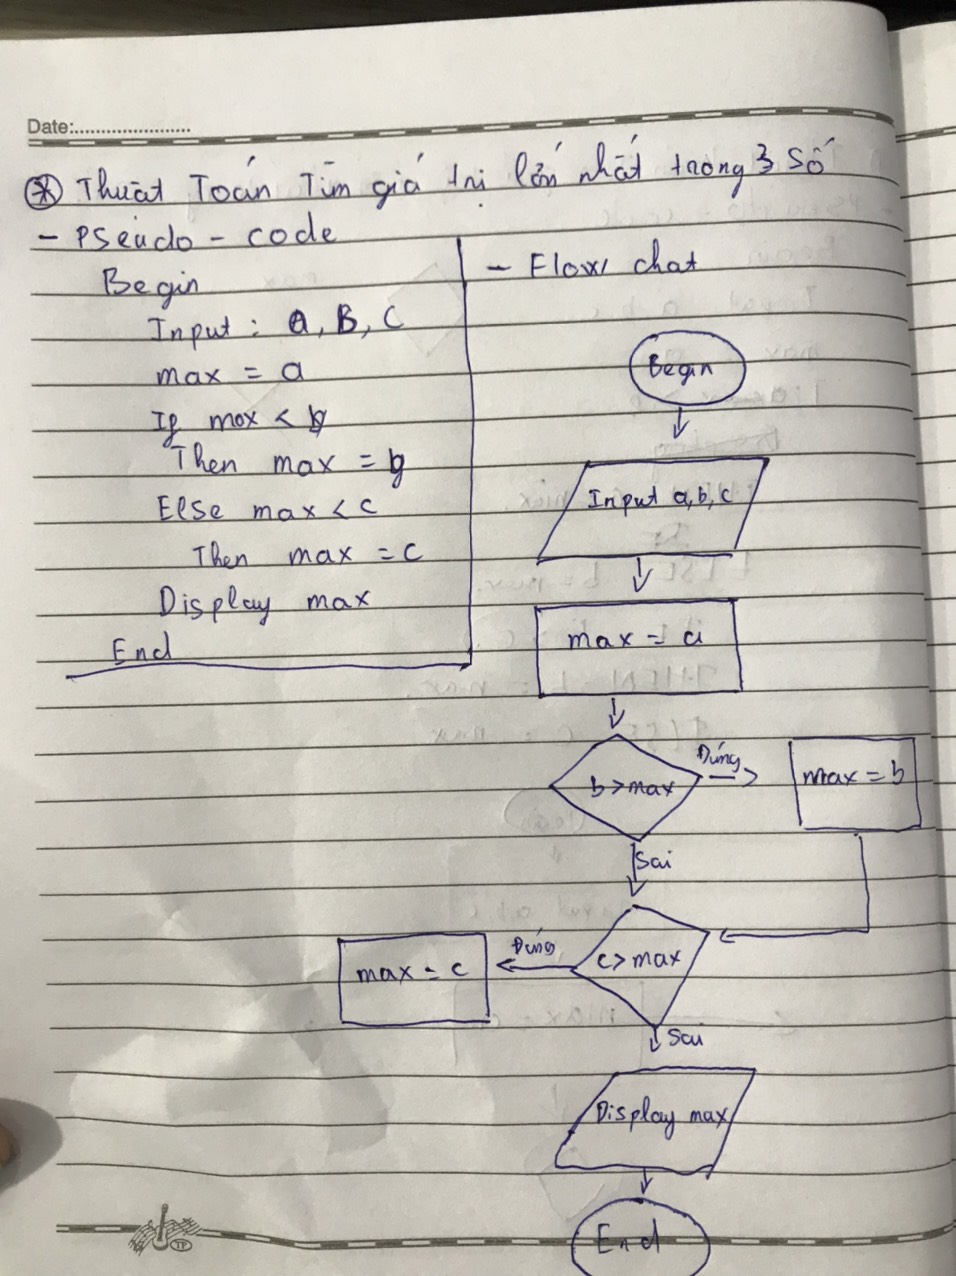 Date:
⊛ Thuật Toán Tìm giá trị lớn nhất trong 3 số
- PSeudo - code
Begin
Input : a, B, C
max = a
If max < b
Then max = b
Else max < c
Then max = c
Display max
End
- Flow chat
Begin
Input a, b, c
max = a
b > max
Đúng
max = b
Sai
c > max
Đúng
max = c
Sai
Display max
End
TP